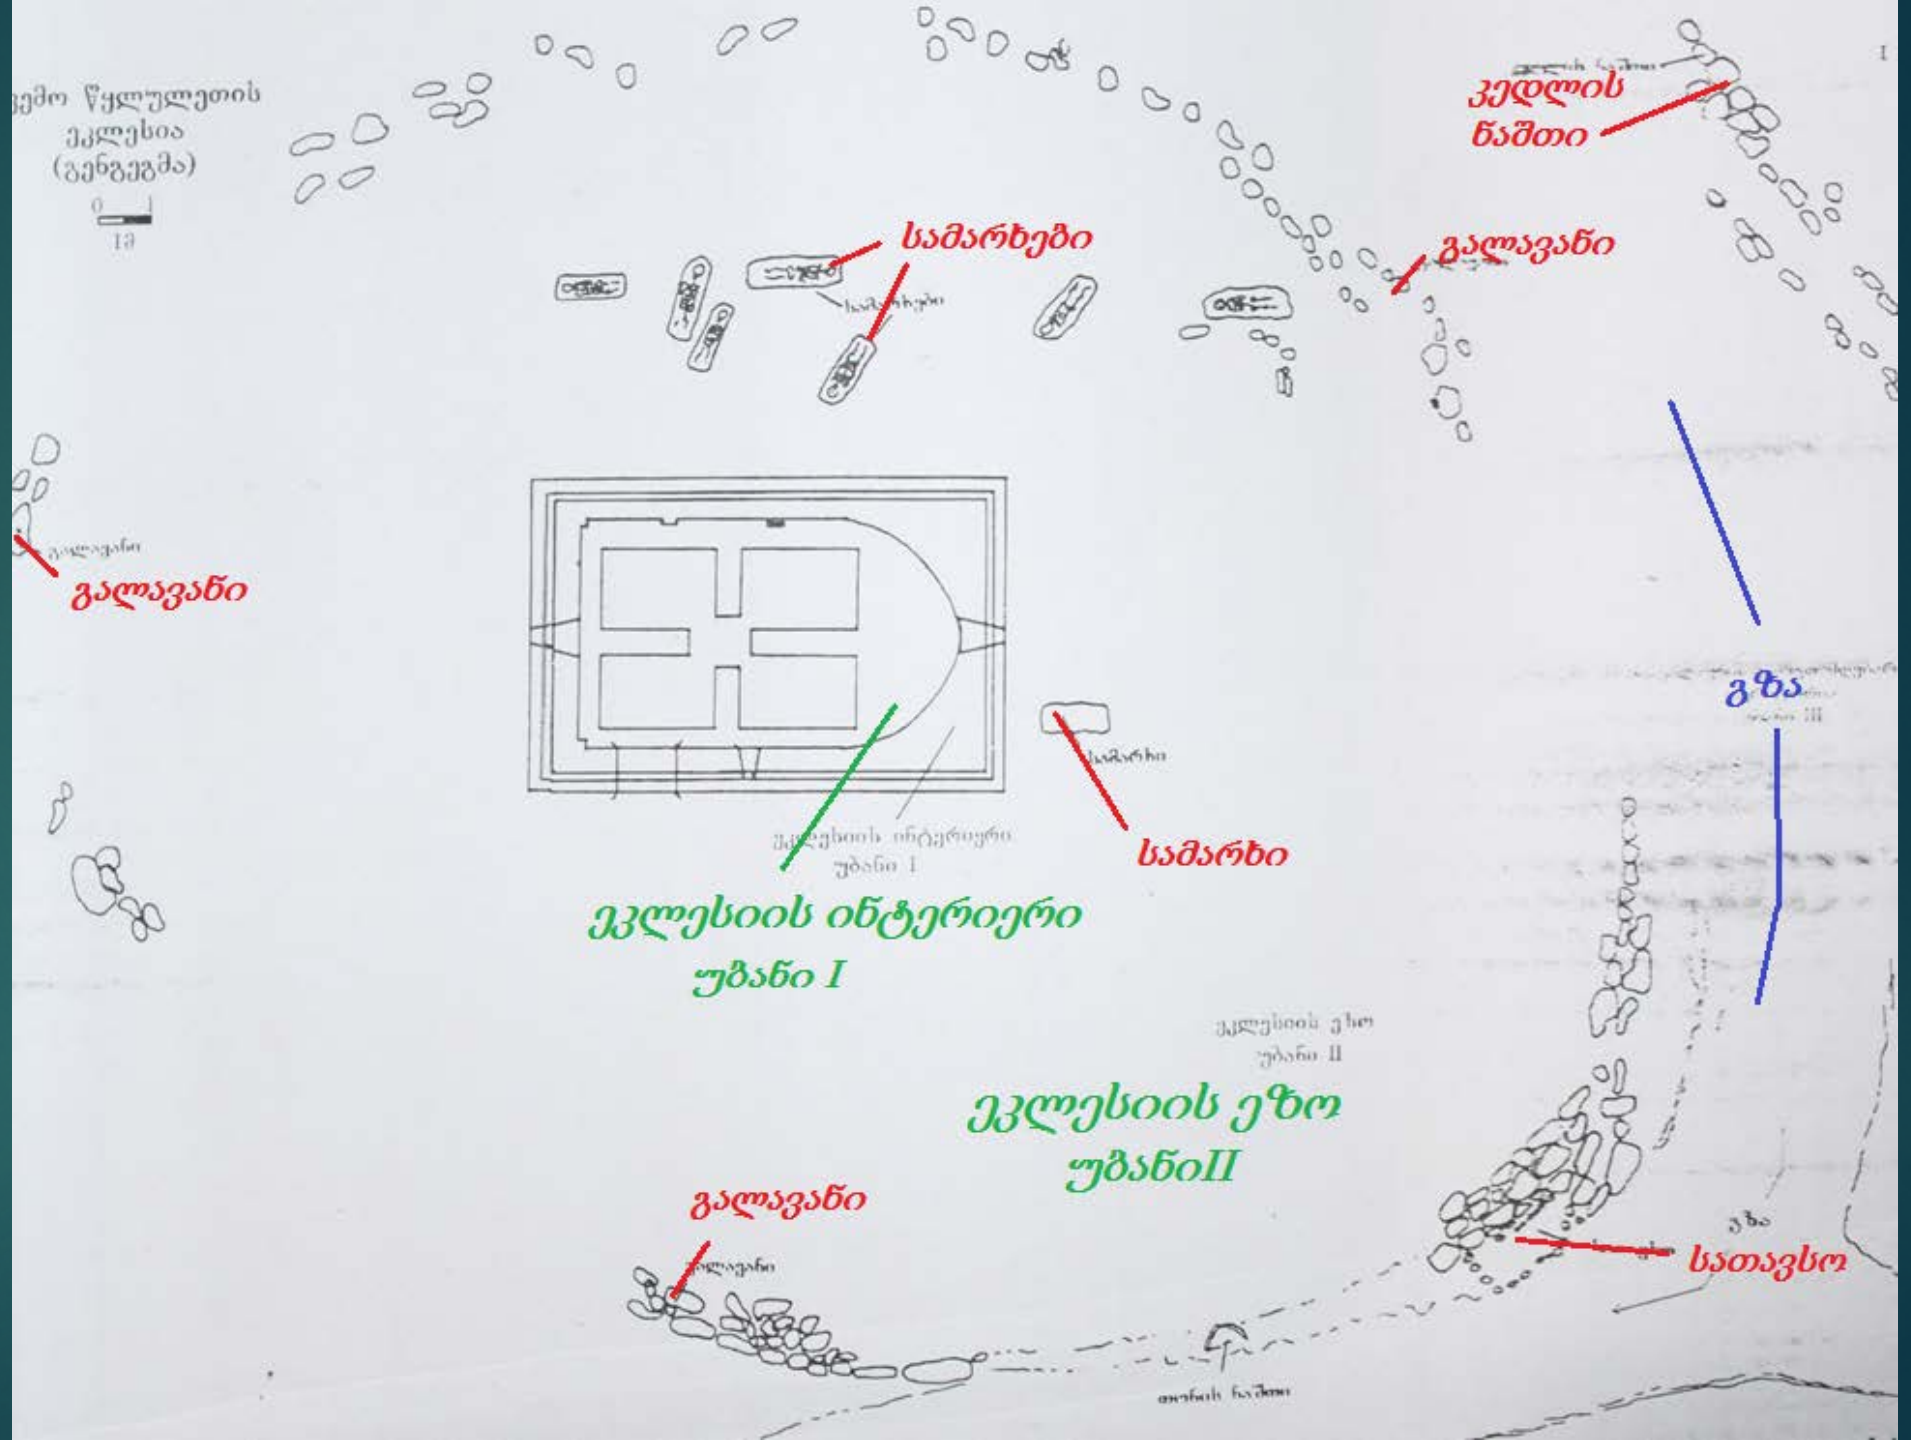 ვემო წყლულეთის
ეკლესია
(გენგეგმა)
0 1
1მ
კედლის
ნაშთი
სამარხები
სამარხები
გალავანი
გალავანი
გალავანი
გზა
სამარხი
სამარხი
ეკლესიის ინტერიერი
უბანი I
ეკლესიის ინტერიერი
უბანი I
ეკლესიის ეზო
უბანი II
ეკლესიის ეზო
უბანიII
გალავანი
გალავანი
გზა
სათავსო
თონის ნაშთი